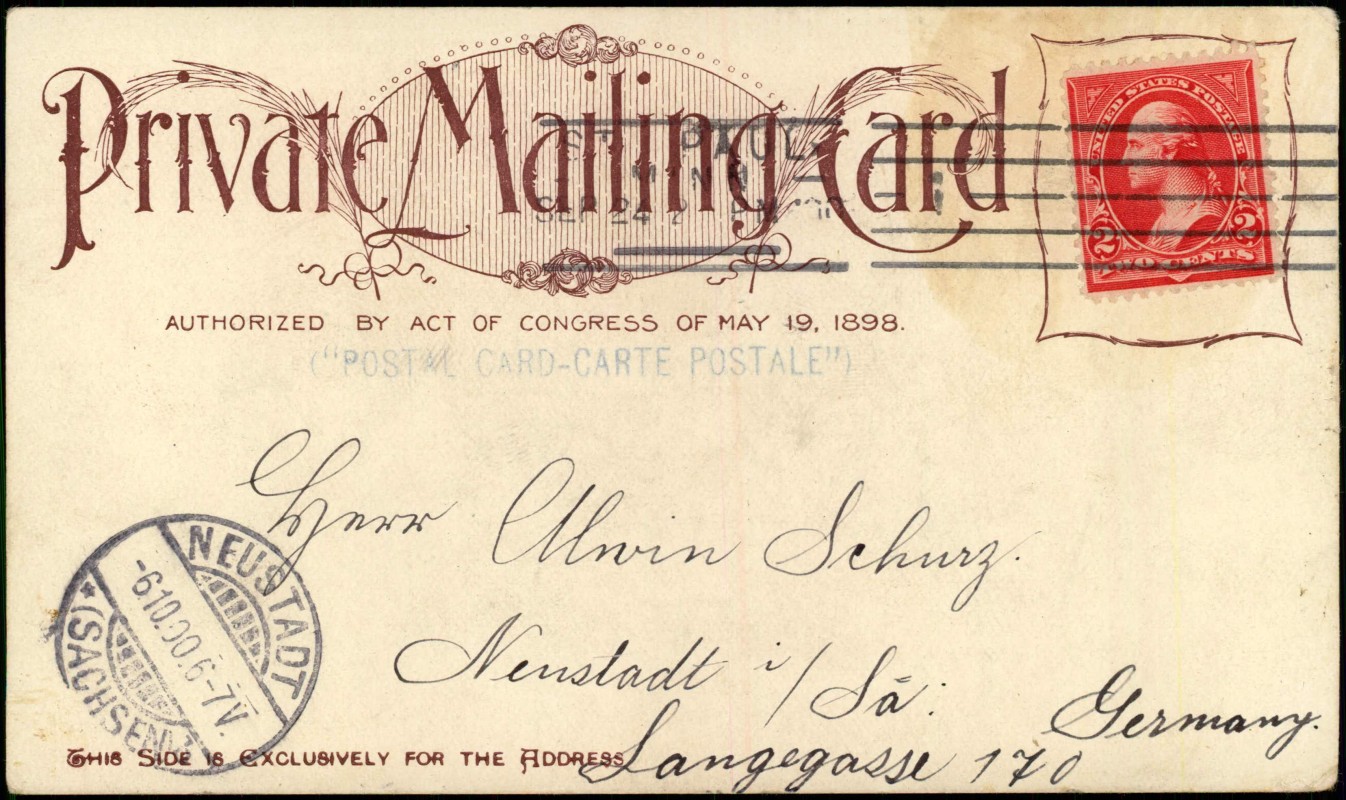 Private Mailing Card
UNITED STATES POSTAGE
2 2
TWO CENTS
ST. PAUL
MINN
SEP 24
AUTHORIZED BY ACT OF CONGRESS OF MAY 19, 1898.
("POSTAL CARD-CARTE POSTALE")
Herr Alwin Schurz.
Neustadt i/Sa.
Germany.
Langegasse 170
NEUSTADT
-6.10.00.6-7V.
* (SACHSEN)
THIS SIDE IS EXCLUSIVELY FOR THE ADDRESS